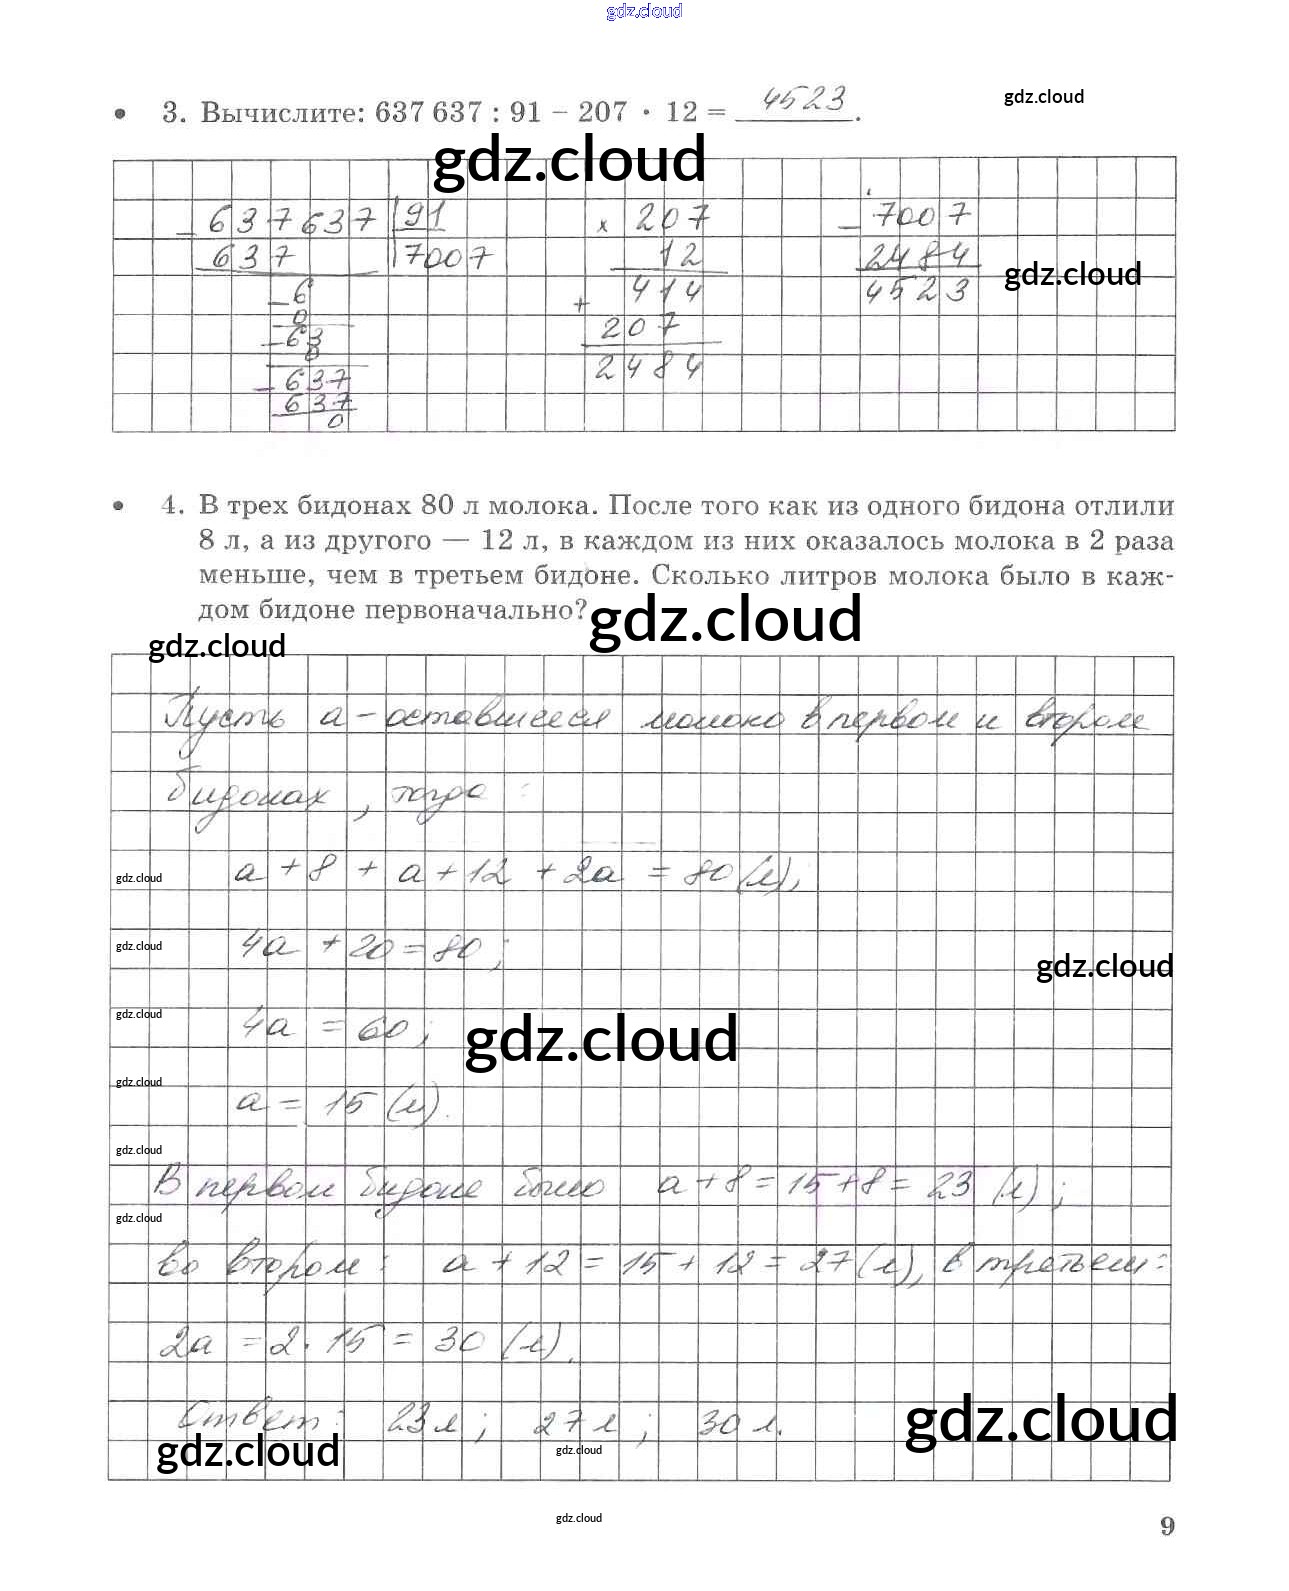 gdz.cloud
• 3. Вычислите: 637 637 : 91 – 207 · 12 = 4523.
gdz.cloud
gdz.cloud
– 637637 | 91
637 | 7007
– 6
0
– 63
0
– 637
637
0
× 207
12
+ 414
207
2484
– 7007
2484
4523
gdz.cloud
• 4. В трех бидонах 80 л молока. После того как из одного бидона отлили
8 л, а из другого — 12 л, в каждом из них оказалось молока в 2 раза
меньше, чем в третьем бидоне. Сколько литров молока было в каж-
дом бидоне первоначально?
gdz.cloud
gdz.cloud
Пусть a – оставшееся молоко в первом и втором
бидонах, тогда:
gdz.cloud
a + 8 + a + 12 + 2a = 80 (л);
gdz.cloud
4a + 20 = 80;
gdz.cloud
gdz.cloud
4a = 60;
gdz.cloud
gdz.cloud
a = 15 (л).
gdz.cloud
В первом бидоне было a + 8 = 15 + 8 = 23 (л);
gdz.cloud
во втором: a + 12 = 15 + 12 = 27 (л), в третьем:
2a = 2 · 15 = 30 (л).
Ответ: 23 л; 27 л; 30 л.
gdz.cloud
gdz.cloud
gdz.cloud
gdz.cloud
9